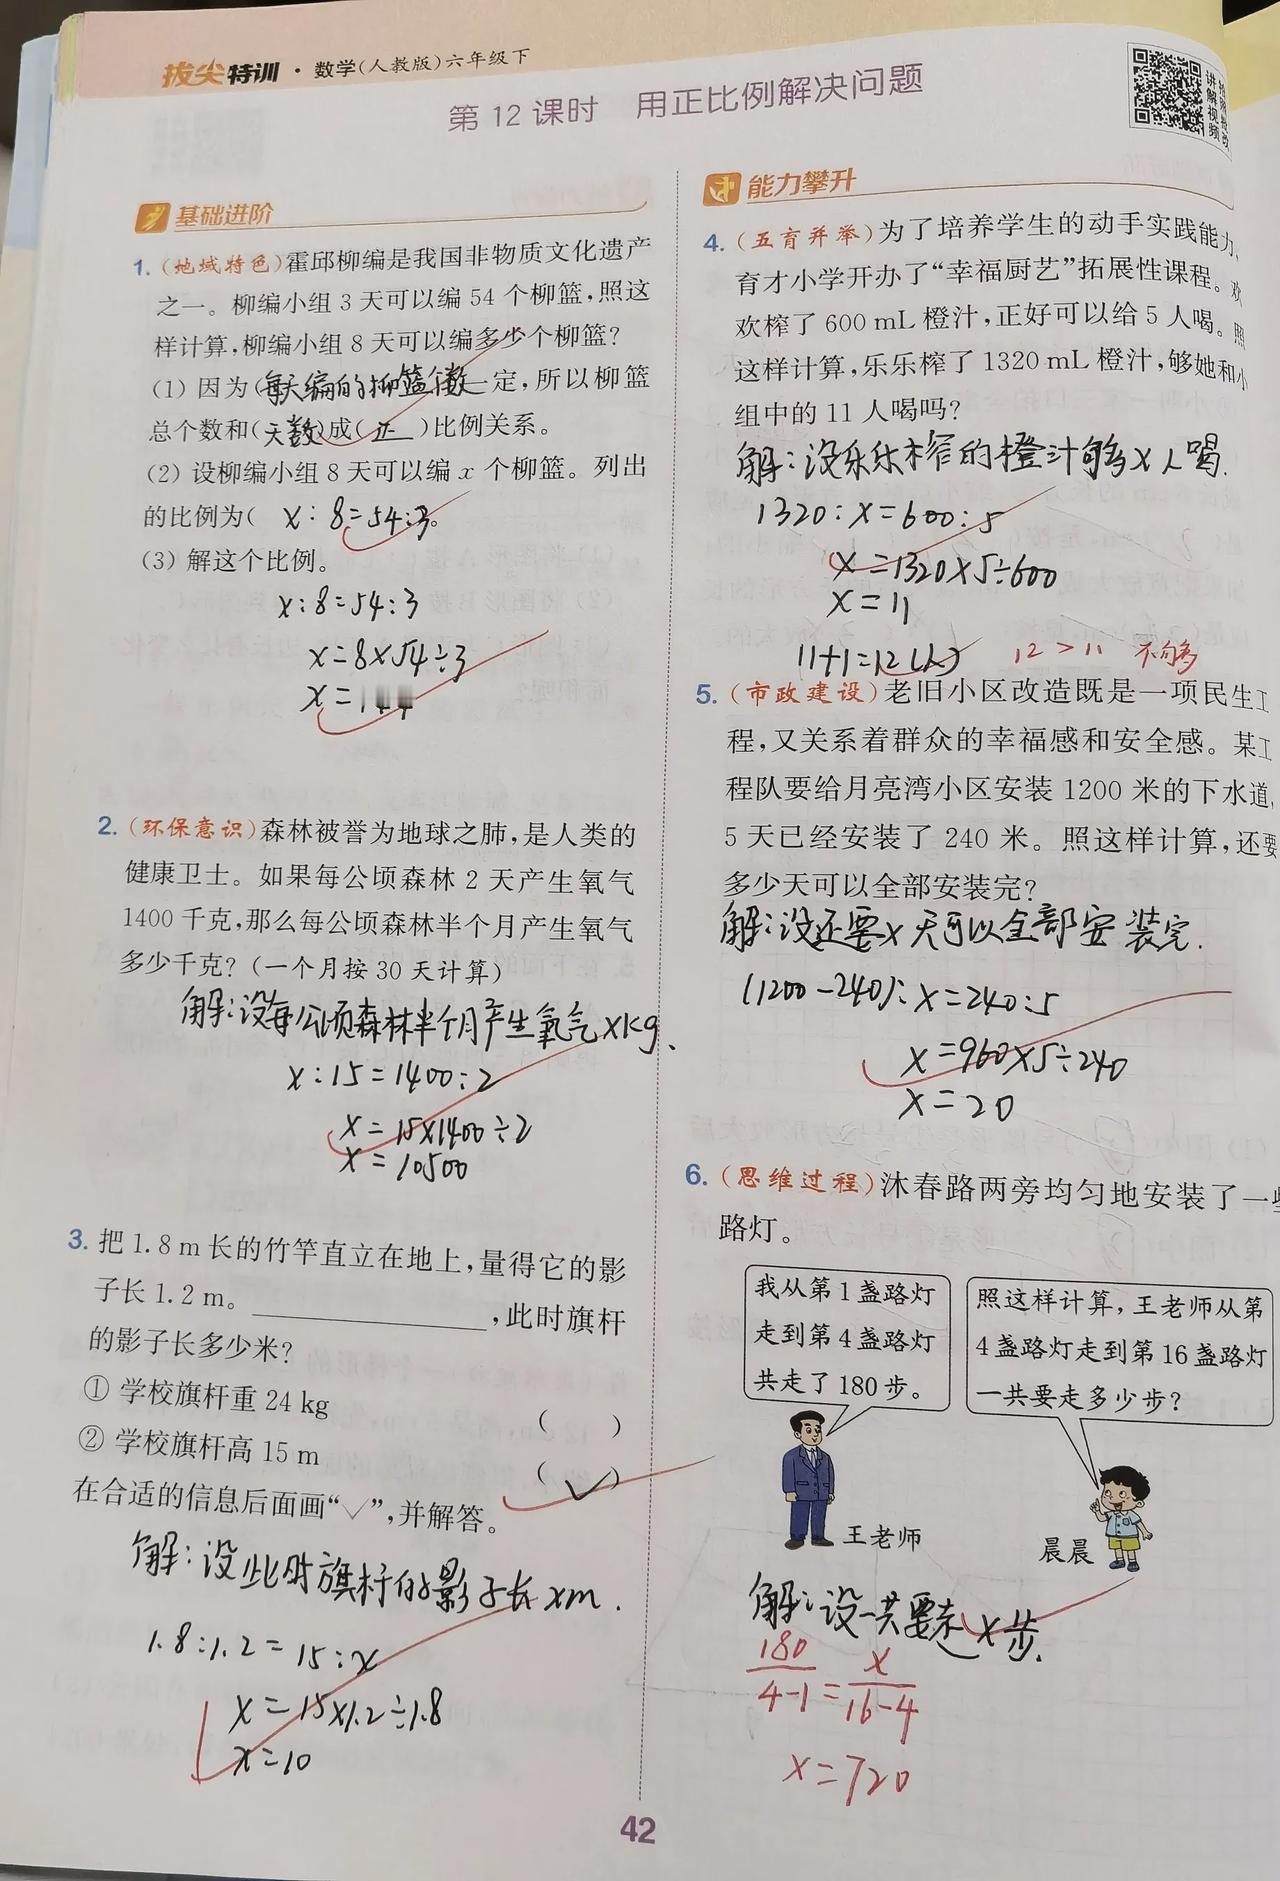 拔尖特训·数学(人教版)六年级下
第12课时 用正比例解决问题
讲解视频
基础进阶
1.(地域特色)霍邱柳编是我国非物质文化遗产
之一。柳编小组3天可以编54个柳篮,照这
样计算,柳编小组8天可以编多少个柳篮?
(1)因为(每天编的柳篮个数)一定,所以柳篮
总个数和(天数)成(正)比例关系。
(2)设柳编小组8天可以编x个柳篮。列出
的比例为( x:8=54:3 )。
(3)解这个比例。
x:8=54:3
x=8×54÷3
x=144
2.(环保意识)森林被誉为地球之肺,是人类的
健康卫士。如果每公顷森林2天产生氧气
1400千克,那么每公顷森林半个月产生氧气
多少千克?(一个月按30天计算)
解:设每公顷森林半个月产生氧气xkg.
x:15=1400:2
x=15×1400÷2
x=10500
3.把1.8m长的竹竿直立在地上,量得它的影
子长1.2m。________________,此时旗杆
的影子长多少米?
①学校旗杆重24kg ( )
②学校旗杆高15m (✓)
在合适的信息后面画“✓”,并解答。
解:设此时旗杆的影子长xm.
1.8:1.2=15:x
x=15×1.2÷1.8
x=10
能力攀升
4.(五育并举)为了培养学生的动手实践能力,
育才小学开办了“幸福厨艺”拓展性课程。欢
欢榨了600mL橙汁,正好可以给5人喝。照
这样计算,乐乐榨了1320mL橙汁,够她和小
组中的11人喝吗?
解:设乐乐榨的橙汁够x人喝.
1320:x=600:5
x=1320×5÷600
x=11
11+1=12(人) 12>11 不够
5.(市政建设)老旧小区改造既是一项民生工
程,又关系着群众的幸福感和安全感。某工
程队要给月亮湾小区安装1200米的下水道,
5天已经安装了240米。照这样计算,还要
多少天可以全部安装完?
解:设还要x天可以全部安装完.
(1200-240):x=240:5
x=960×5÷240
x=20
6.(思维过程)沐春路两旁均匀地安装了一些
路灯。
我从第1盏路灯
走到第4盏路灯
共走了180步。
照这样计算,王老师从第
4盏路灯走到第16盏路灯
一共要走多少步?
王老师
晨晨
解:设一共要走x步.
180/(4-1)=x/(16-4)
x=720
42